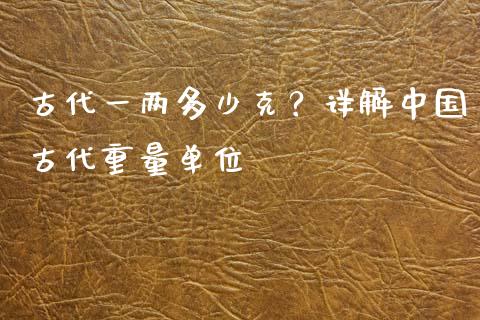 古代一两多少克？详解中国
古代重量单位